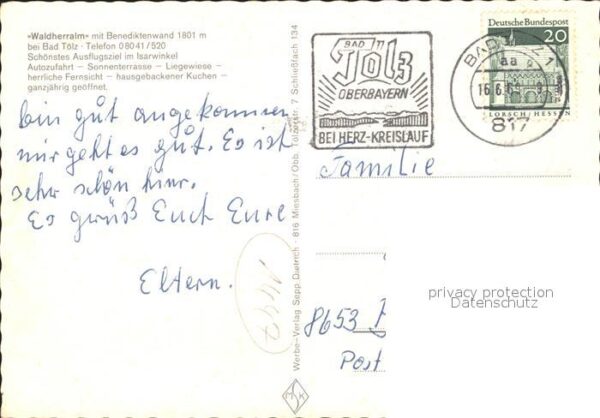 »Waldherralm« mit Benediktenwand 1801 m
bei Bad Tölz · Telefon 08041/520
Schönstes Ausflugsziel im Isarwinkel
Autozufahrt — Sonnenterrasse — Liegewiese —
herrliche Fernsicht — hausgebackener Kuchen —
ganzjährig geöffnet.
bin gut angekommen
mir geht es gut. Es ist
sehr schön hier.
Es grüß Euch Eure
Eltern.
Werbe-Verlag Sepp Dietrich · 816 Miesbach/Obb. Tölzerstr. 7 Schließfach 134
BAD
Tölz
OBERBAYERN
BEI HERZ-KREISLAUF
BAD TÖLZ 1
aa
16.6.69
817
Deutsche Bundespost
20
LORSCH/HESSEN
Familie
8653
Post
privacy protection
Datenschutz